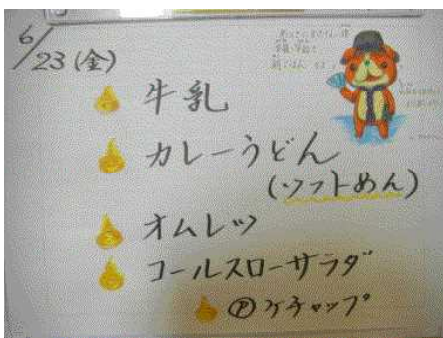 6/23(金)
牛乳
カレーうどん
(ソフトめん)
オムレツ
コールスローサラダ
Ⓟケチャップ